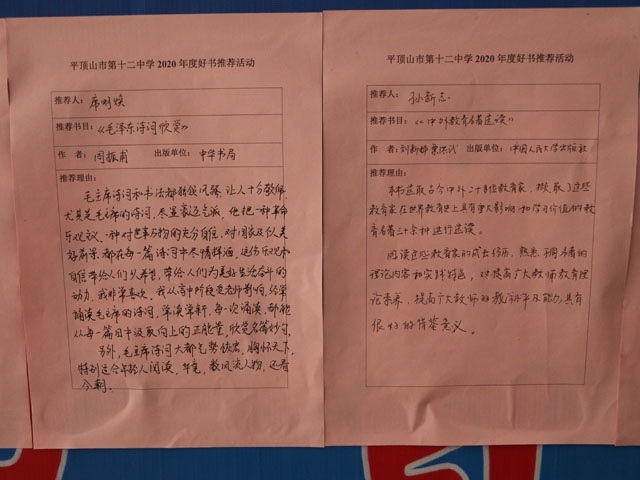 平顶山市第十二中学 2020 年度好书推荐活动
推荐人：席明焕
推荐书目：《毛泽东诗词欣赏》
作 者：周振甫 出版单位：中华书局
推荐理由：
毛主席诗词和书法都独领风骚，让人十分敬佩，
尤其是毛主席的诗词，尽显豪迈之派，他把一种革命
乐观主义、一种对世事万物的充分自信、对国家及人类
美好前景都在每一篇诗词中尽情挥洒，这份乐观和
自信带给人们以希望，带给人们为美好生活奋斗的
动力，我非常喜欢，我从高中阶段受老师影响，经常
诵读毛主席的诗词，常读常新，每一次诵读，都能
从每一篇目中汲取向上的正能量，欣赏名篇妙句。
另外，毛主席诗词大都气势恢宏，胸怀天下，
特别适合年轻人阅读，毕竟，数风流人物，还看
今朝。
平顶山市第十二中学 2020 年度好书推荐活动
推荐人：孙新志
推荐书目：《中外教育名著选读》
作 者：刘新科 栗洪武 出版单位：中国人民大学出版社
推荐理由：
本书选取古今中外二十多位教育家，撷取了这些
教育家在世界教育史上具有重大影响和学习价值的教
育名著三十余种进行选读。
阅读这些教育家的成长经历，熟悉不同名著的
理论内容和实践特色，对提高广大教师教育理
论素养、提高广大教师的教学水平及能力具有
很好的借鉴意义。